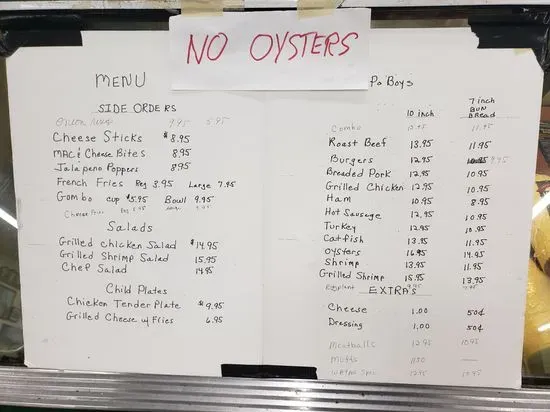 NO OYSTERS
MENU
SIDE ORDERS
Onion Rings 9.95 5.95
Cheese Sticks $8.95
MAC & Cheese Bites 8.95
Jalapeno Poppers 8.95
French Fries Reg 3.95 Large 7.95
Gombo cup $5.95 Bowl 9.95
Cheese Fries Reg
Salads
Grilled chicken Salad $14.95
Grilled Shrimp Salad 15.95
Chef Salad 14.95
Child Plates
Chicken Tender Plate $9.95
Grilled Cheese w/ Fries 6.95
Po Boys
10 inch 7 inch BUN BREAD
Combo 12.95 11.95
Roast Beef 13.95 11.95
Burgers 12.95 9.95
Breaded Pork 12.95 10.95
Grilled Chicken 12.95 10.95
Ham 10.95 8.95
Hot Sausage 12.95 10.95
Turkey 12.95 10.95
Catfish 13.95 11.95
Oysters 16.95 14.95
Shrimp 13.95 11.95
Grilled Shrimp 15.95 13.95
Eggplant 9.95
EXTRA'S
Cheese 1.00 50¢
Dressing 1.00 50¢
Meatballs 12.95 10.95
Muffs 11.50 —
12.95 10.95